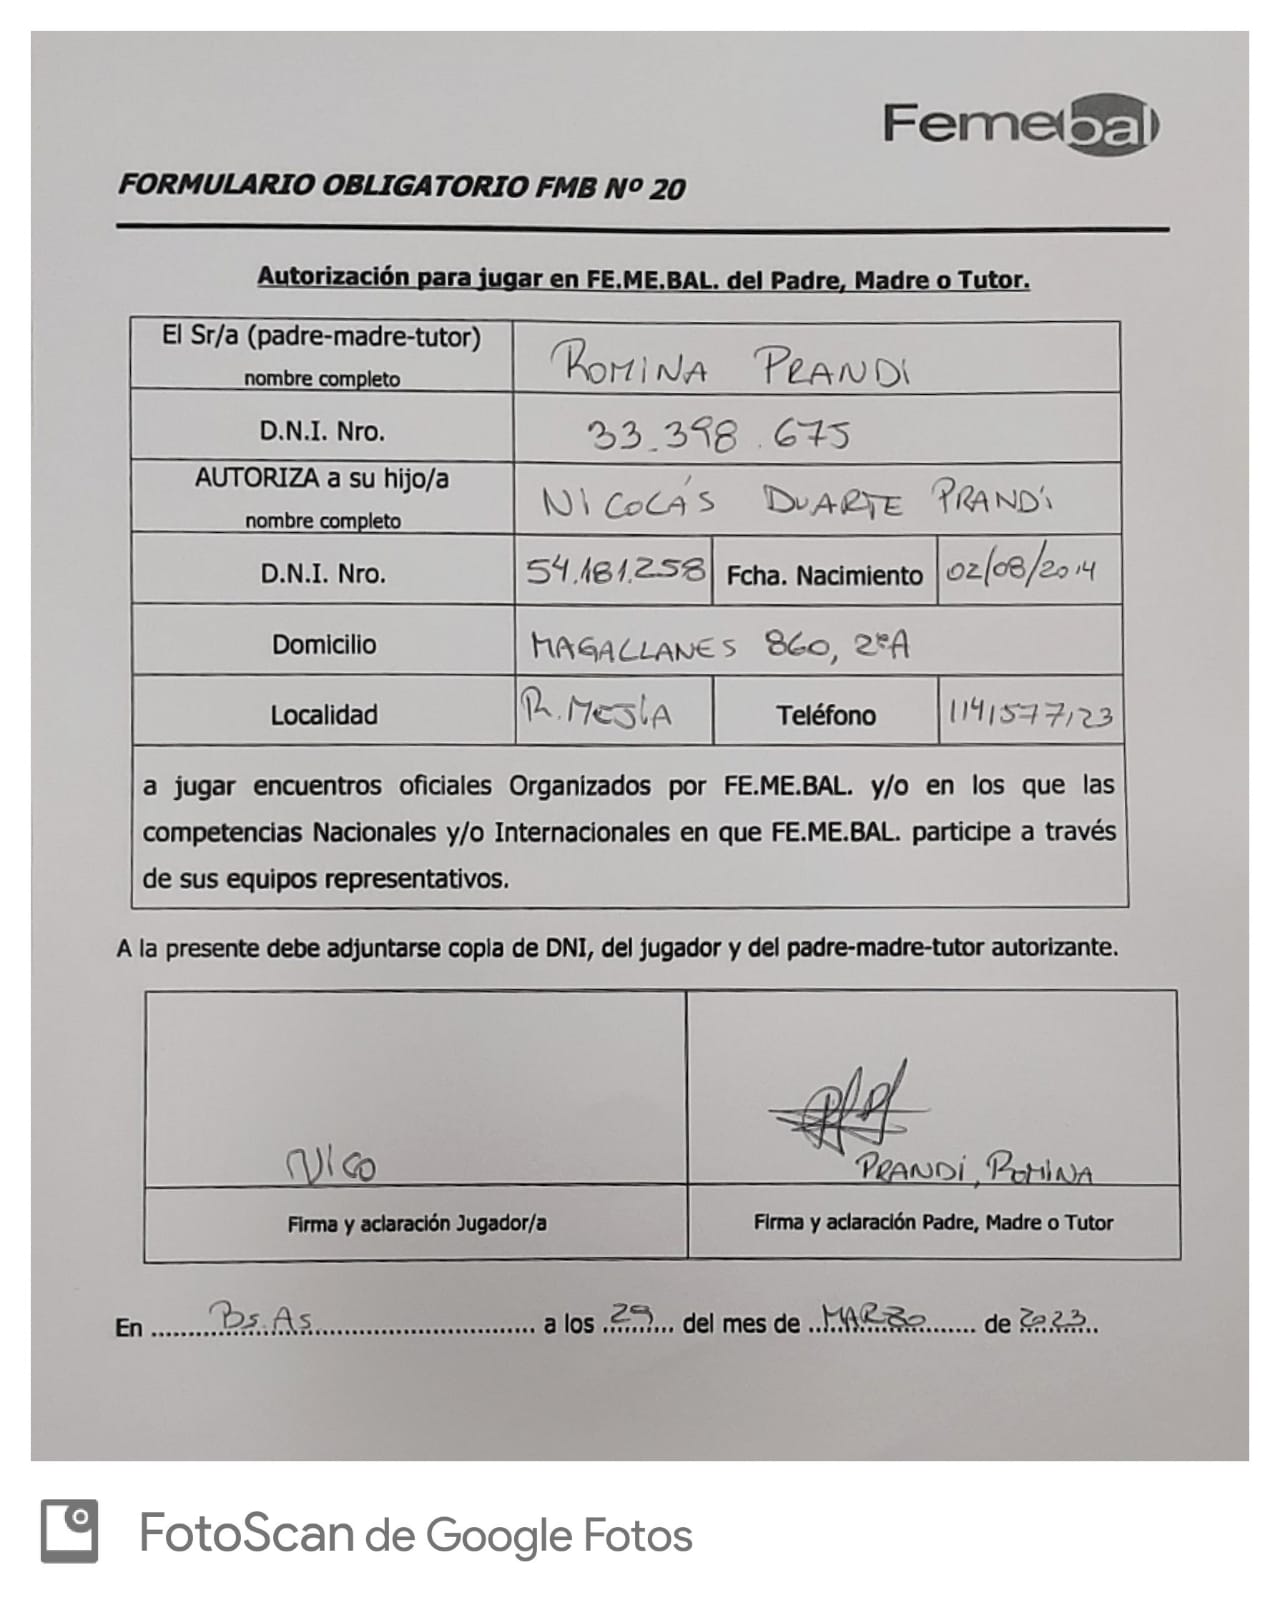 Femebal
FORMULARIO OBLIGATORIO FMB Nº 20
Autorización para jugar en FE.ME.BAL. del Padre, Madre o Tutor.
El Sr/a (padre-madre-tutor)
nombre completo
ROMINA PRANDI
D.N.I. Nro.
33.398.675
AUTORIZA a su hijo/a
nombre completo
NICOLÁS DUARTE PRANDI
D.N.I. Nro.
54.181.258
Fcha. Nacimiento
02/08/2014
Domicilio
MAGALLANES 860, 2ºA
Localidad
R. MEJÍA
Teléfono
1141577123
a jugar encuentros oficiales Organizados por FE.ME.BAL. y/o en los que las
competencias Nacionales y/o Internacionales en que FE.ME.BAL. participe a través
de sus equipos representativos.
A la presente debe adjuntarse copia de DNI, del jugador y del padre-madre-tutor autorizante.
NICO
PRANDI, ROMINA
Firma y aclaración Jugador/a
Firma y aclaración Padre, Madre o Tutor
En Bs. As. a los 29 del mes de MARZO de 2023
FotoScan de Google Fotos